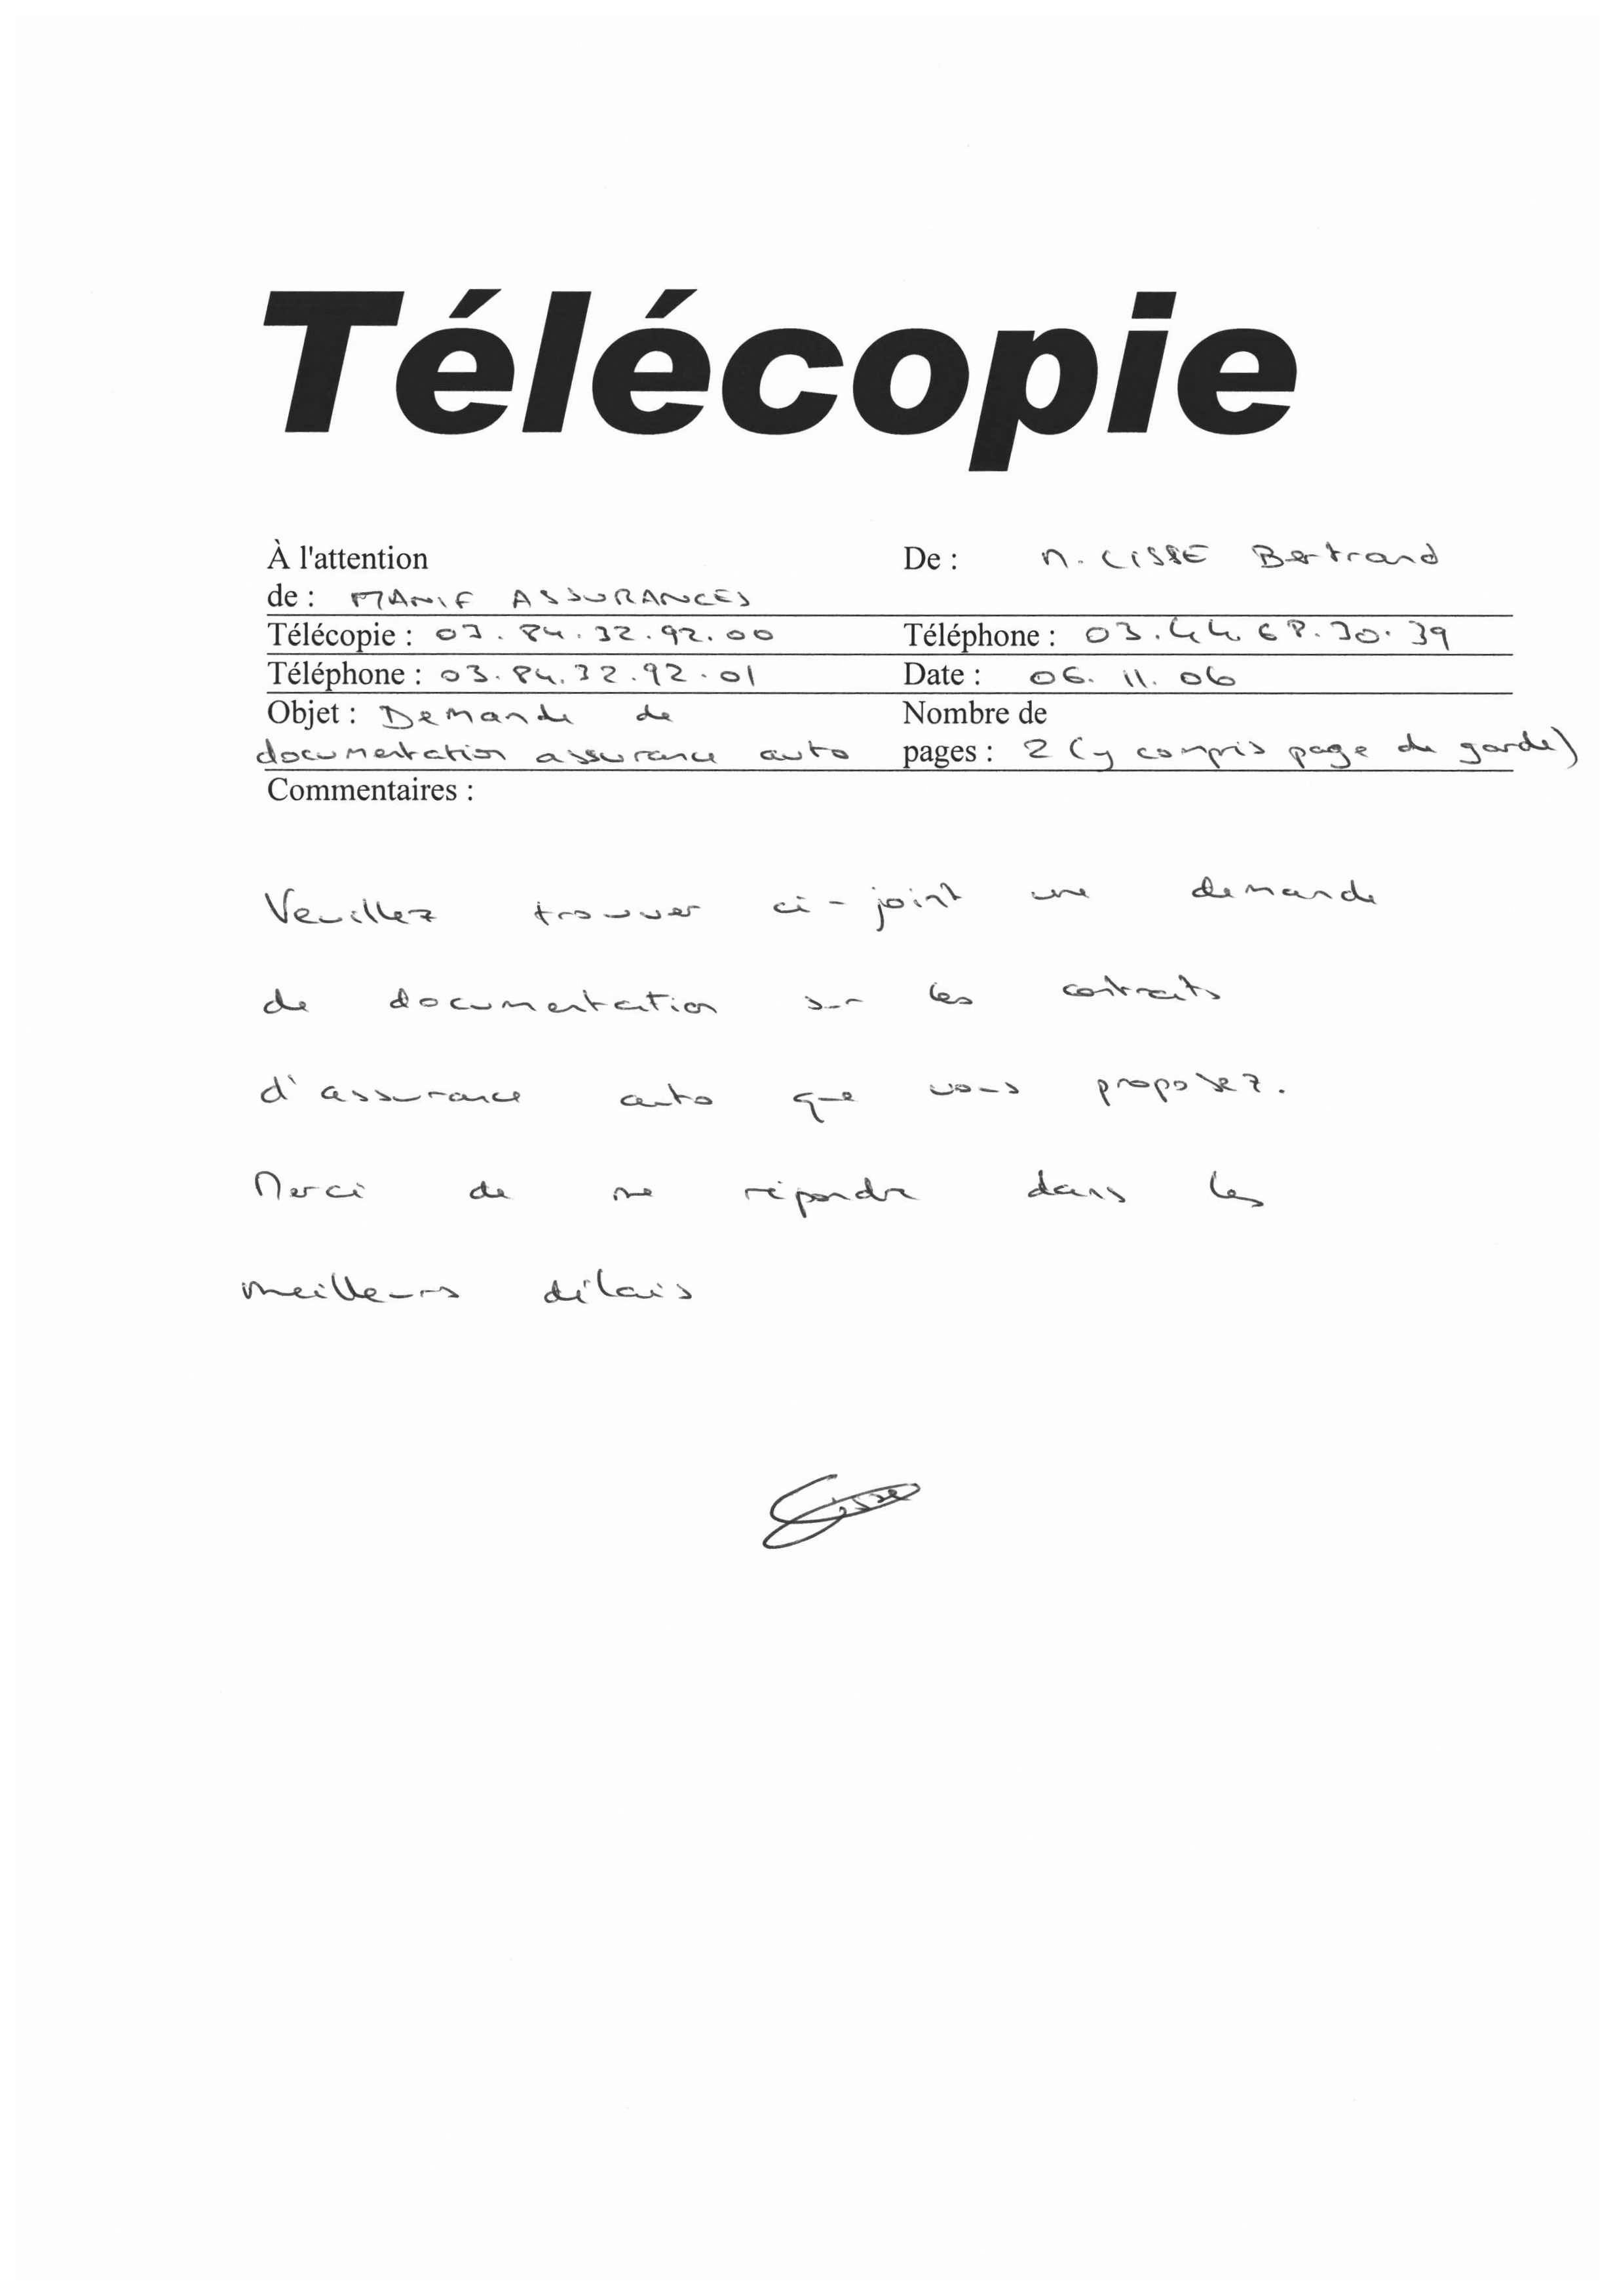 Télécopie
À l'attention
de : MANIF ASSURANCES
De : M. CISSE Bertrand
Télécopie : 03.84.32.92.00
Téléphone : 03.44.68.30.39
Téléphone : 03.84.32.92.01
Date : 06.11.06
Objet : Demande de
documentation assurance auto
Nombre de
pages : 2 (y compris page de garde)
Commentaires :
Veuillez trouver ci-joint une demande
de documentation sur les contrats
d'assurance auto que vous proposez.
Merci de me répondre dans les
meilleurs délais
Cisse